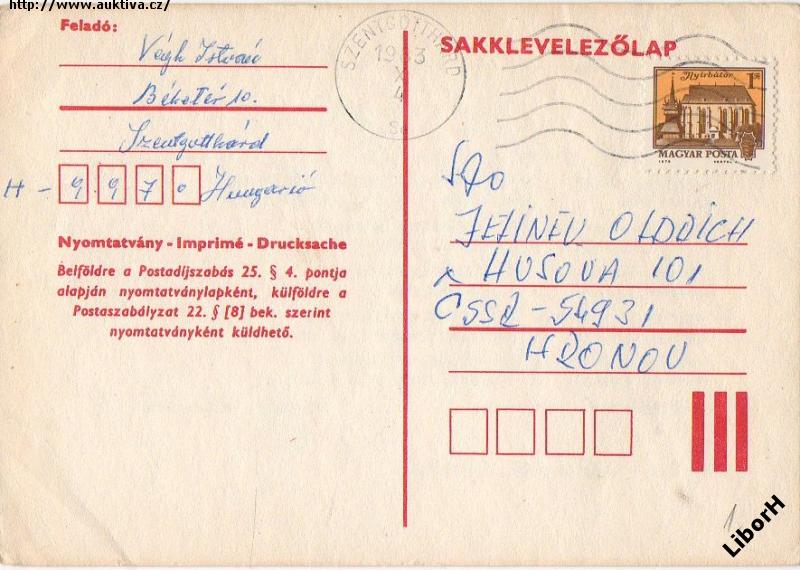 http://www.auktiva.cz/
Feladó:
Végh István
Béke tér 10.
Szentgotthárd
H - 9970 Hungarió
Nyomtatvány - Imprimé - Drucksache
Belföldre a Postadíjszabás 25. § 4. pontja
alapján nyomtatványlapként, külföldre a
Postaszabályzat 22. § [8] bek. szerint
nyomtatványként küldhető.
SZENTGOTTHÁRD
1983
X
4
SAKKLEVELEZŐLAP
Nyírbátor
1Ft
MAGYAR POSTA
JELÍNEK OLDŘICH
HUSOVA 101
ČSSR - 54931
HRONOV
1
LiborH